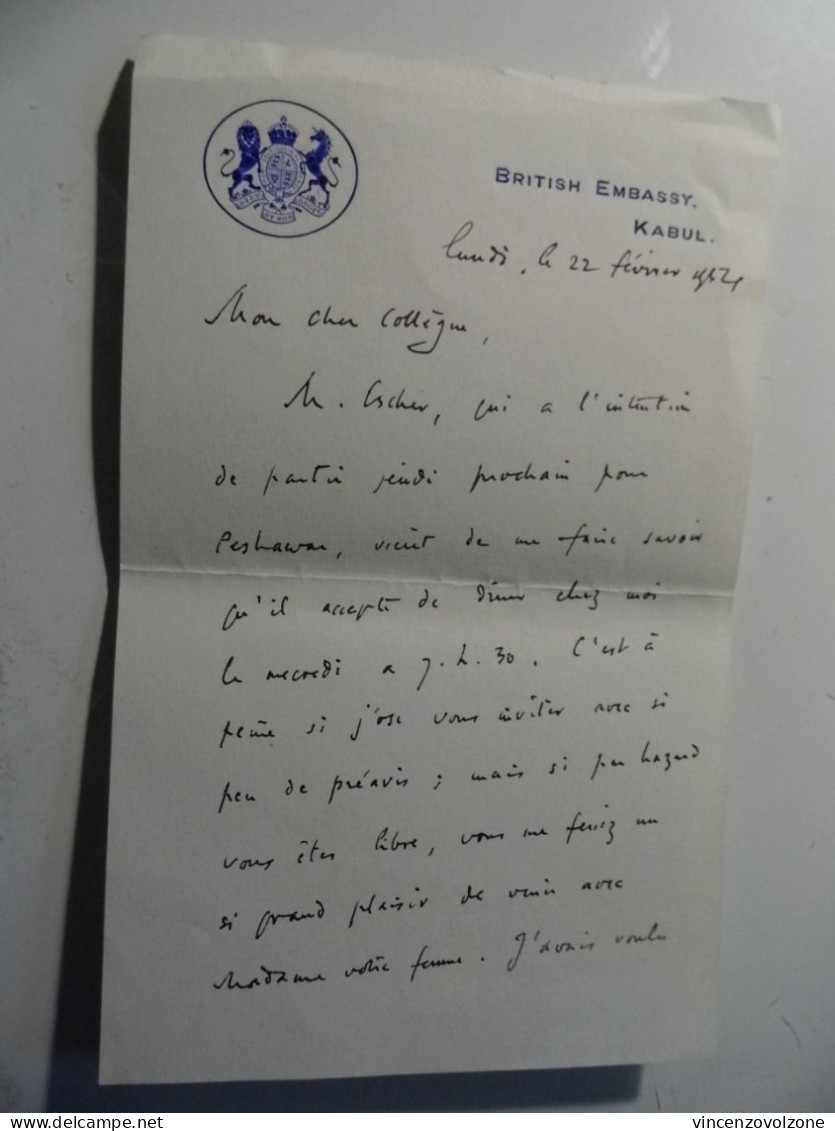 BRITISH EMBASSY.
KABUL.
lundi, le 22 février 1954
Mon cher Collègue,
M. Escher, qui a l'intention
de partir jeudi prochain pour
Peshawar, vient de me faire savoir
qu'il accepte de dîner chez moi
le mecredi a 7.h.30. C'est à
peine si j'ose vous inviter avec si
peu de préavis ; mais si par hazard
vous êtes libre, vous me feriez un
si grand plaisir de venir avec
Madame votre femme. J'avais voulu
delcampe.net
vincenzovolzone